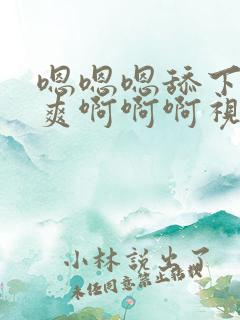 嗯嗯嗯舔下
爽啊啊啊視
小林説出了
未经同意禁止转载